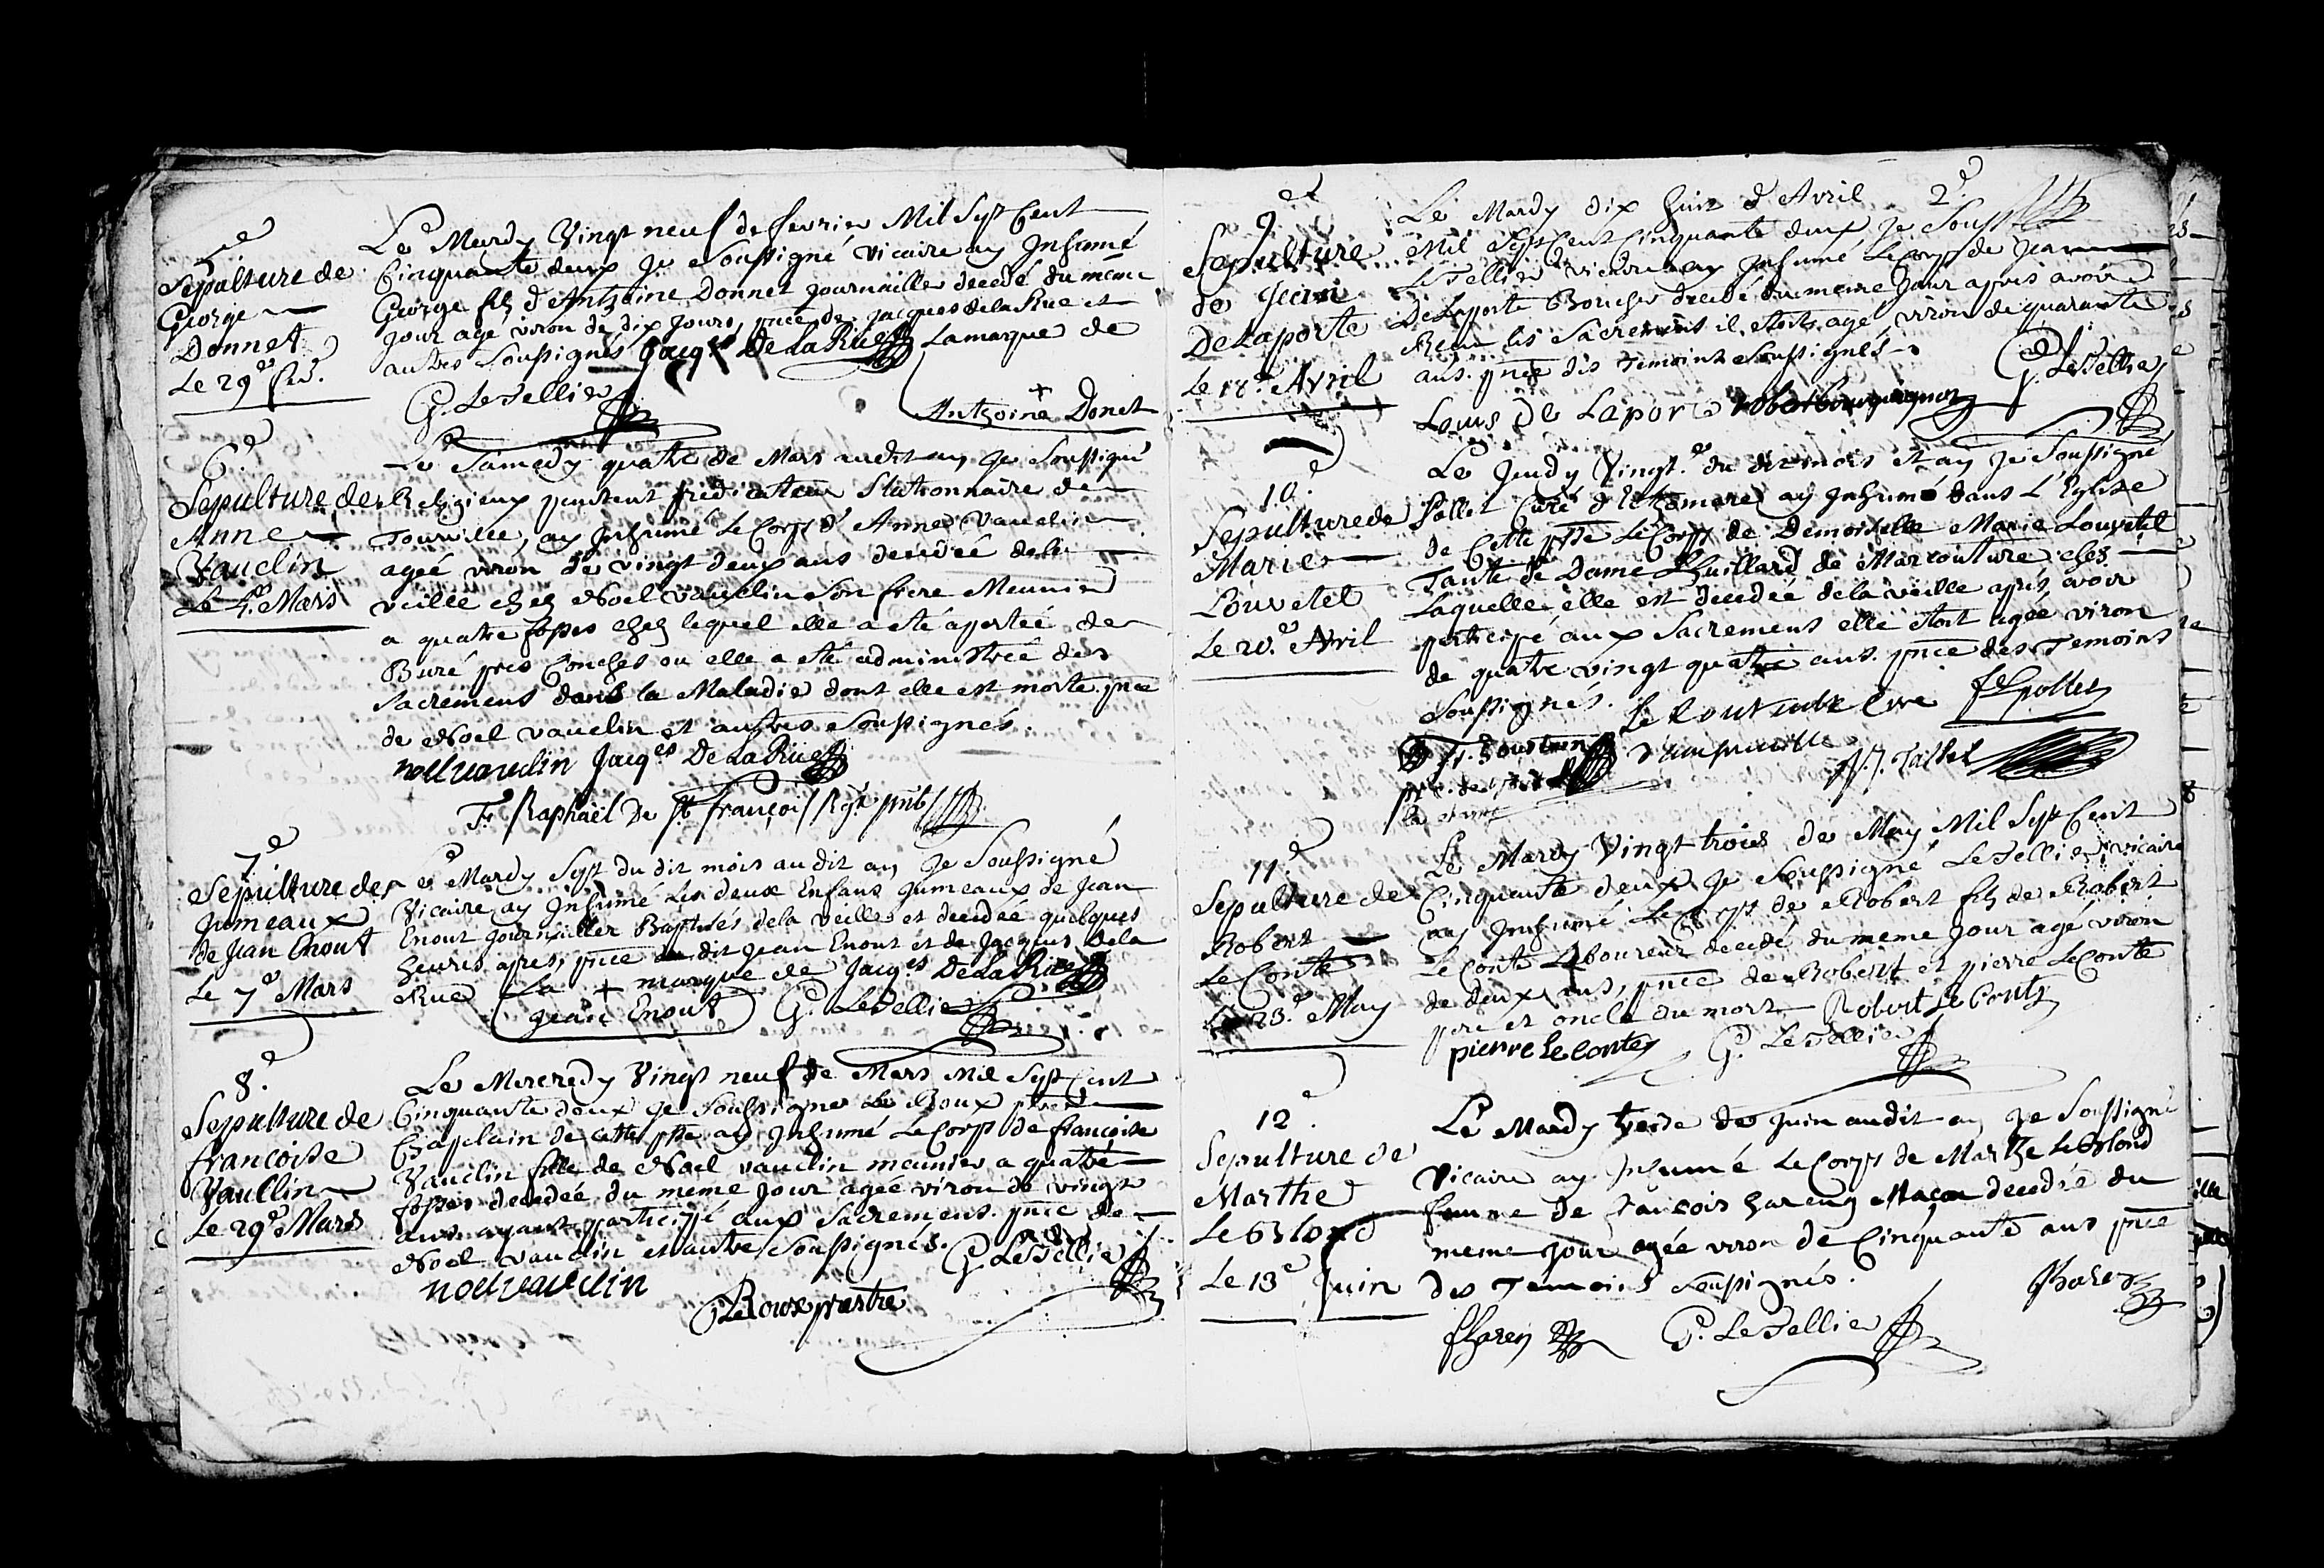 5.e
Sepulture de
George
Donnet
Le 29.e fev.
Le Mardy Vingt neuf de fevrier Mil Sept Cent
Cinquante deux Je Soussigné Vicaire ay Inhumé
George fils d'Anthoine Donnet Journailler decedé du meme
Jour agé viron de dix Jours, pnce de Jacques de la Rue et
autres Soussignés Jacq.s De La Rue La marque de
G. LeTellier
+
Anthoine Donet
6.e
Sepulture de
Anne
Vauclin
Le 4.e Mars
Le Samedy quatre de Mars audit an Je Soussigné
Religieux penitent predicateur Stationnaire de
Tourville, ay Inhumé Le Corps d'Anne Vauclin
agée viron de vingt deux ans decedée de la
veille chez Noel Vauclin Son frere Meunier
a quatre fosses chez lequel elle a eté aportée de
Buré pres Conches ou elle a eté administrée des
Sacremens dans la Maladie dont elle est morte. pnce
de Noel vauclin et autres Soussignés.
noel vauclin Jacq.es De La Rue
F. Raphaël De St. françois
7.e
Sepulture des
Jumeaux
de Jean Enout
Le 7.e Mars
Le Mardy Sept du dit mois audit an Je Soussigné
Vicaire ay Inhumé Les deux Enfans Jumeaux de Jean
Enout Journailler Baptisés de la veille et decedée quelques
heures apres, pnce du dit Jean Enout et de Jacques de la
Rue La + marque de Jacq.es De La Rue
Jean Enout G. LeTellier
8.e
Sepulture de
francoise
Vaucllin
Le 29.e Mars
Le Mercredy Vingt neuf de Mars Mil Sept Cent
Cinquante deux Je Soussigné Le Roux ptre
Chapelain de cette psse ay Inhumé Le Corps de francoise
Vauclin fille de Noel vauclin meunier a quatre
fosses decedée du meme Jour agée viron de vingt
ans ayant participé aux Sacremens. pnce de
Noel vauclin et autres Soussignés. G. LeTellier
noel vauclin
LeRoux prestre
2.e
9.e
Sepulture
de Jean
De Laporte
Le 18.e Avril
Le Mardy dix huit d'Avril
Mil Sept Cent Cinquante deux Je Souss
LeTellier Vicaire ay Inhumé Le Corps de Jean
De Laporte Boucher decedé du meme Jour apres avoir
Receu les Sacremens il etoit agé viron de quarante
ans. pnce des Temoins Soussignés
G. LeTellier
Louis De Laporte
10.e
Sepulture de
Marie
Louvetel
Le 20.e Avril
Le Jeudy Vingt.e du dit mois et an Je Soussigné
Pollet Curé d'Ectomare ay Inhumé dans L'Eglise
de Cette psse Le Corps de Demoiselle Marie Louvetel
Tante de Dame Lhuillard de Marcouture chez
Laquelle elle est decedée de la veille apres avoir
participé aux Sacremens elle etoit agée viron
de quatre vingt quatre ans. pnce des Temoins
Soussignés.
11.e
Sepulture de
Robert
Le Conte
Le 23.e May
Le Mardy Vingt trois de May Mil Sept Cent
Cinquante deux Je Soussigné LeTellier vicaire
ay Inhumé Le Corps de Robert fils de Robert
Le Conte Laboureur decedé du meme Jour agé viron
de deux ans, pnce de Robert et pierre Le Conte
pere et oncle du mort. Robert Le Conte
pierre Le Conte G. LeTellier
12.e
Sepulture de
Marthe
LeBlond
Le 13.e Juin
Le Mardy treize de Juin audit an Je Soussigné
Vicaire ay Inhumé Le Corps de Marthe LeBlond
femme de francois hareng Maçon decedée du
meme Jour agée viron de Cinquante ans pnce
des Temoins Soussignés.
G. LeTellier